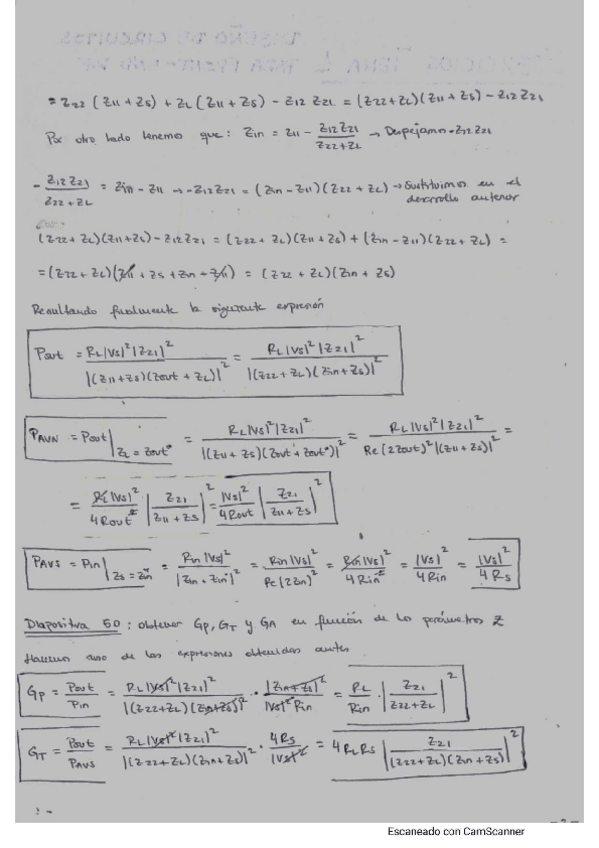 = Z22 (Z11 + Zs) + ZL (Z11 + Zs) - Z12 Z21 = (Z22+ZL)(Z11 + Zs) - Z12 Z21
Por otro lado tenemos que: Zin = Z11 - Z12 Z21 / (Z22+ZL) → Despejamos -Z12 Z21
- Z12 Z21 / (Z22 + ZL) = Zin - Z11 → -Z12 Z21 = (Zin - Z11)(Z22 + ZL) → Sustituimos en el
desarrollo anterior
(Z22 + ZL)(Z11 + Zs) - Z12 Z21 = (Z22 + ZL)(Z11 + Zs) + (Zin - Z11)(Z22 + ZL) =
= (Z22 + ZL)(Z11 + Zs + Zin - Z11) = (Z22 + ZL)(Zin + Zs)
Resultando finalmente la siguiente expresión
Pout = RL |Vs|² |Z21|² / |(Z11+Zs)(Zout + ZL)|² = RL |Vs|² |Z21|² / |(Z22+ZL)(Zin+Zs)|²
PAVN = Pout | ZL = Zout* = RL |Vs|² |Z21|² / |(Z11 + Zs)(Zout + Zout*)|² = RL |Vs|² |Z21|² / Re(2Zout)² |(Z11 + Zs)|² =
= RL |Vs|² / 4Rout² |Z21 / (Z11 + Zs)|² = |Vs|² / 4Rout |Z21 / (Z11 + Zs)|²
PAVS = Pin | Zs = Zin* = Rin |Vs|² / |Zin + Zin*|² = Rin |Vs|² / Re(2Zin)² = Rin |Vs|² / 4Rin² = |Vs|² / 4Rin = |Vs|² / 4Rs
Diapositiva 50: obtener Gp, GT y GA en función de los parámetros Z
Hacemos uso de las expresiones obtenidas antes
Gp = Pout / Pin = RL |Vs|² |Z21|² / |(Z22+ZL)(Zin+Zs)|² · |Zin+Zs|² / |Vs|² Rin = RL / Rin · |Z21 / (Z22+ZL)|²
GT = Pout / PAVS = RL |Vs|² |Z21|² / |(Z22+ZL)(Zin+Zs)|² · 4Rs / |Vs|² = 4RL Rs |Z21 / (Z22+ZL)(Zin+Zs)|²
- 2 -
Escaneado con CamScanner